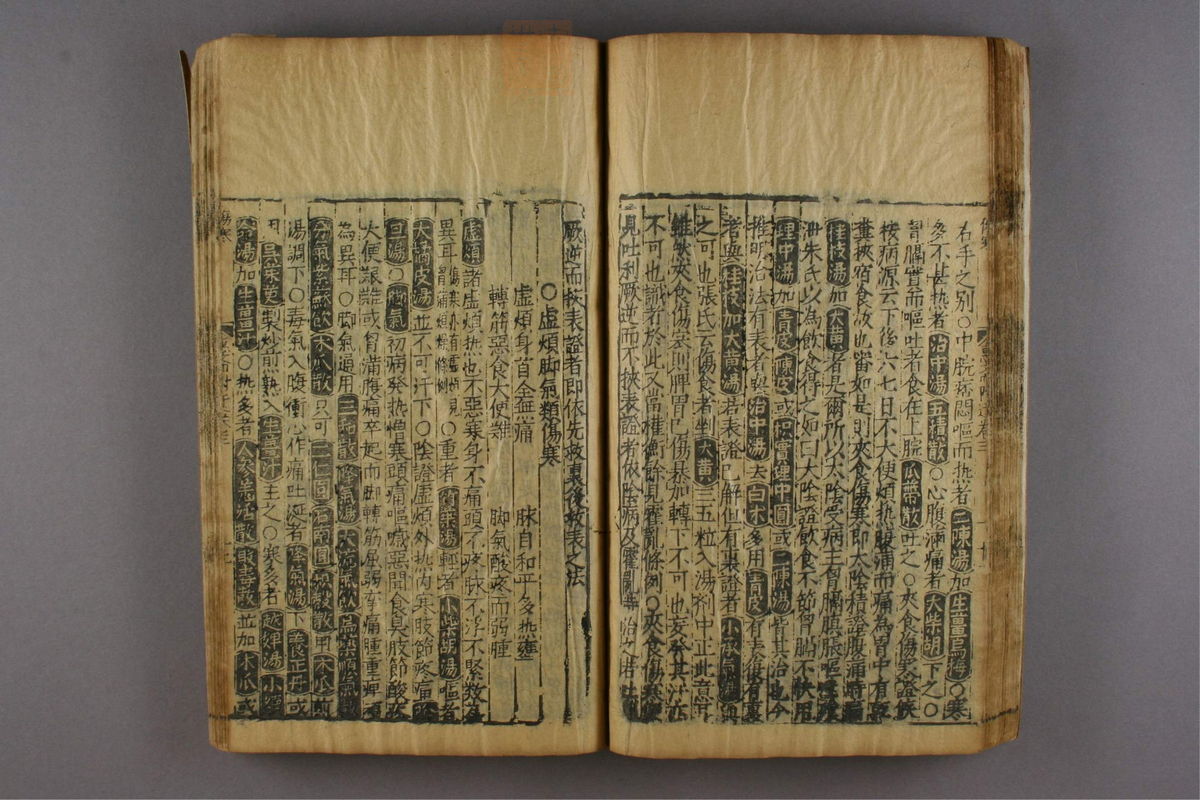 右手之別○中脘痞悶嘔而热者二陳湯加生薑烏梅○寒
多不甚热者治中湯五積散○心腹滿痛者大柴胡下之○
胃膈實而嘔吐者食在上脘瓜蒂散吐之○夾食傷寒證候
按病源云下後六七日不大便煩热腹滿而痛為胃中有乾
糞挾宿食故也當如是則夾食傷寒即太陰積證腹痛時痛
桂枝湯加大黃者是爾所以太陰受病主胃膈䐜脹嘔
朱氏以為飲食得之如曰太陰證飲食不節胃膈不快用
理中湯加青皮陳皮或枳實理中圓或二陳湯皆其治也今
推明治法有表者與治中湯去白木多用青皮有表復有裏
者與桂枝加大黃湯若表證已解但有裏證者小承氣湯
之可也張氏云傷食者剉大黃三五粒入湯剂中正此意耳
雖然夾食傷寒則脾胃已傷暴加轉下不可也妄發其汗亦
不可也識者於此又當權衡餘見霍亂條例○夾食傷寒
見吐利厥逆而不挾表證者依陰病及霍亂 治之若
厥逆而挾表證者即依先救裏後救表之法
○虛煩脚氣類傷寒
虛煩身首金無痛 脉自和平多热壅
轉筋惡食大便難 脚氣酸疼而弱腫
虛煩諸虛煩热也不惡寒身不痛頭不疼脉不浮不緊數為
異耳傷寒亦有虛煩見胃痛煩燥條例○重者竹葉湯輕者小柴胡湯嘔者
大橘皮湯並不可汗下○陰證虛煩外热内寒肢節疼痛
湯○脚氣初病發热憎寒頭痛嘔噦惡聞食臭肢節酸疼
大便艱難或胃滿腹痛卒起而脚轉筋屈弱孿痛腫重
為異耳○脚氣通用三和散降氣湯大流氣飲烏藥順氣散
分氣紫蘇飲木瓜散只可二仁圓 圓 散用木瓜煎
湯調下○毒氣入腹衝心作痛吐涎者降氣湯下養正丹或
吳茱萸製炒煎熟入生薑汁主之○寒多者越婢湯小續
命湯加生薑汁○热多者人参羌活散敗毒散並加木瓜或